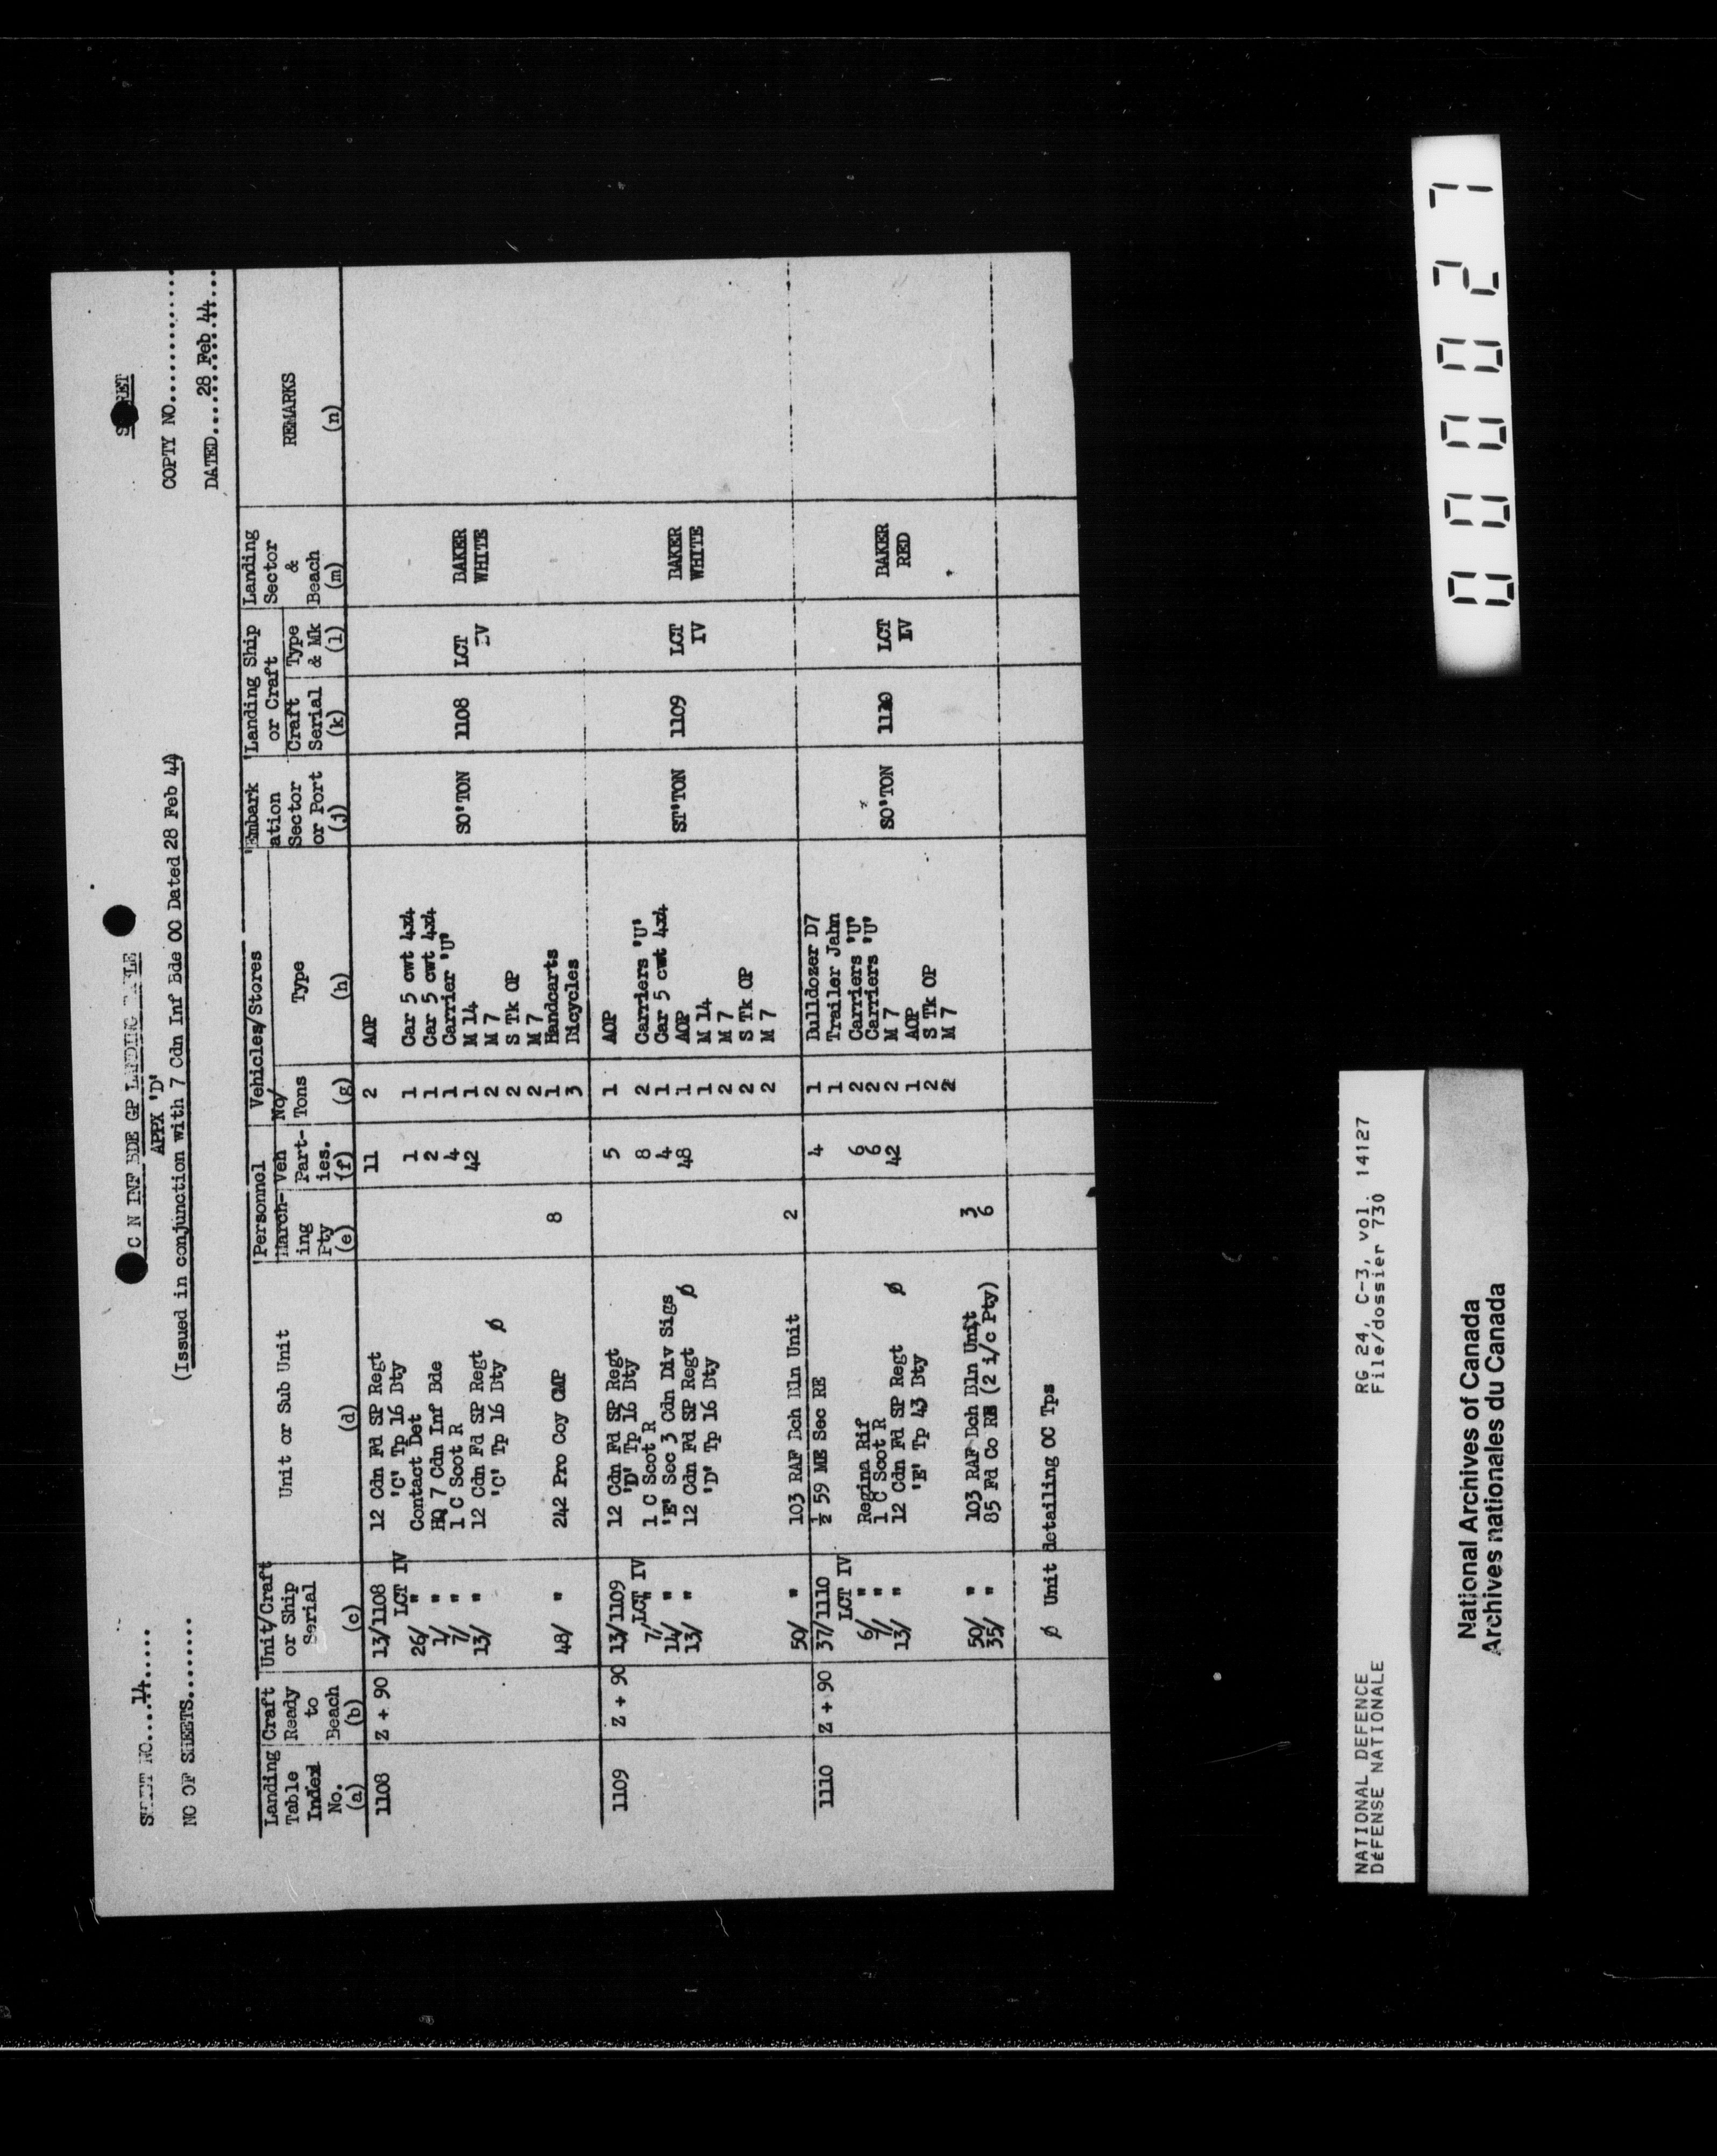 SHEET NO....14.....
NO OF SHEETS........
C N INF BDE GP LANDING TABLE
APPX 'D'
(Issued in conjunction with 7 Cdn Inf Bde OO Dated 28 Feb 44)
COPTY NO..............
DATED.....28 Feb 44...
Landing Table Index No. (a) | Craft Ready to Beach (b) | Unit/Craft or Ship Serial (c) | Unit or Sub Unit (d) | Personnel March-ing Pty (e) | Veh Part-ies. (f) | Vehicles/Stores No/Tons (g) | Type (h) | Embark ation Sector or Port (j) | Landing Ship or Craft Craft Serial (k) | Type & Mk (l) | Landing Sector & Beach (m) | REMARKS (n)
1108 Z + 90 13/1108 12 Cdn Fd SP Regt 11 2 AOP
LCT IV 'C' Tp 16 Bty
26/ " Contact Det 1 1 Car 5 cwt 4x4
1/ " HQ 7 Cdn Inf Bde 2 1 Car 5 cwt 4x4
7/ " 1 C Scot R 4 1 Carrier 'U'
13/ " 12 Cdn Fd SP Regt 42 1 M 14 SO'TON 1108 LCT IV BAKER WHITE
'C' Tp 16 Bty ø 2 M 7
2 S Tk OP
2 M 7
48/ " 242 Pro Coy CMP 8 1 Handcarts
3 Bicycles
1109 Z + 90 13/1109 12 Cdn Fd SP Regt 5 1 AOP
LCT IV 'D' Tp 16 Bty
7/ " 1 C Scot R 8 2 Carriers 'U'
14/ " 'E' Sec 3 Cdn Div Sigs 4 1 Car 5 cwt 4x4
13/ " 12 Cdn Fd SP Regt ø 48 1 AOP ST'TON 1109 LCT IV BAKER WHITE
'D' Tp 16 Bty 1 M 14
2 M 7
2 S Tk OP
2 M 7
50/ " 103 RAF Bch Bln Unit 2
1110 Z + 90 37/1110 ½ 59 ME Sec RE 4 1 Bulldozer D7
LCT IV 1 Trailer Jahn
6/ " Regina Rif 6 2 Carriers 'U'
7/ " 1 C Scot R 6 2 Carriers 'U'
13/ " 12 Cdn Fd SP Regt ø 42 2 M 7 SO'TON 1110 LCT IV BAKER RED
'E' Tp 43 Bty 1 AOP
2 S Tk OP
2 M 7
50/ " 103 RAF Bch Bln Unit 3
35/ " 85 Fd Co RE (2 i/c Pty) 6
ø Unit detailing OC Tps
NATIONAL DEFENCE RG 24, C-3, vol. 14127
DÉFENSE NATIONALE File/dossier 730
National Archives of Canada
Archives nationales du Canada
000027